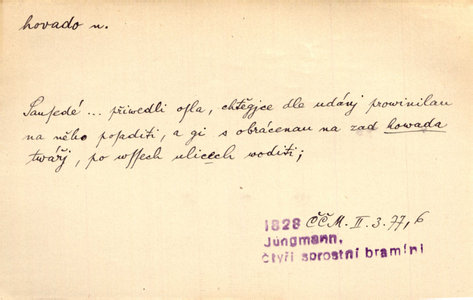 hovado n.
Sausedé ... přiwedli osla, chtěgjce dle udánj prowinilau
na něho posaditi, a gi s obrácenau na zad howada
twářj, po wssech ulicech woditi;
1828 ČČM. II. 3. 77, 6
Jungmann,
čtyři sprostní bramíni